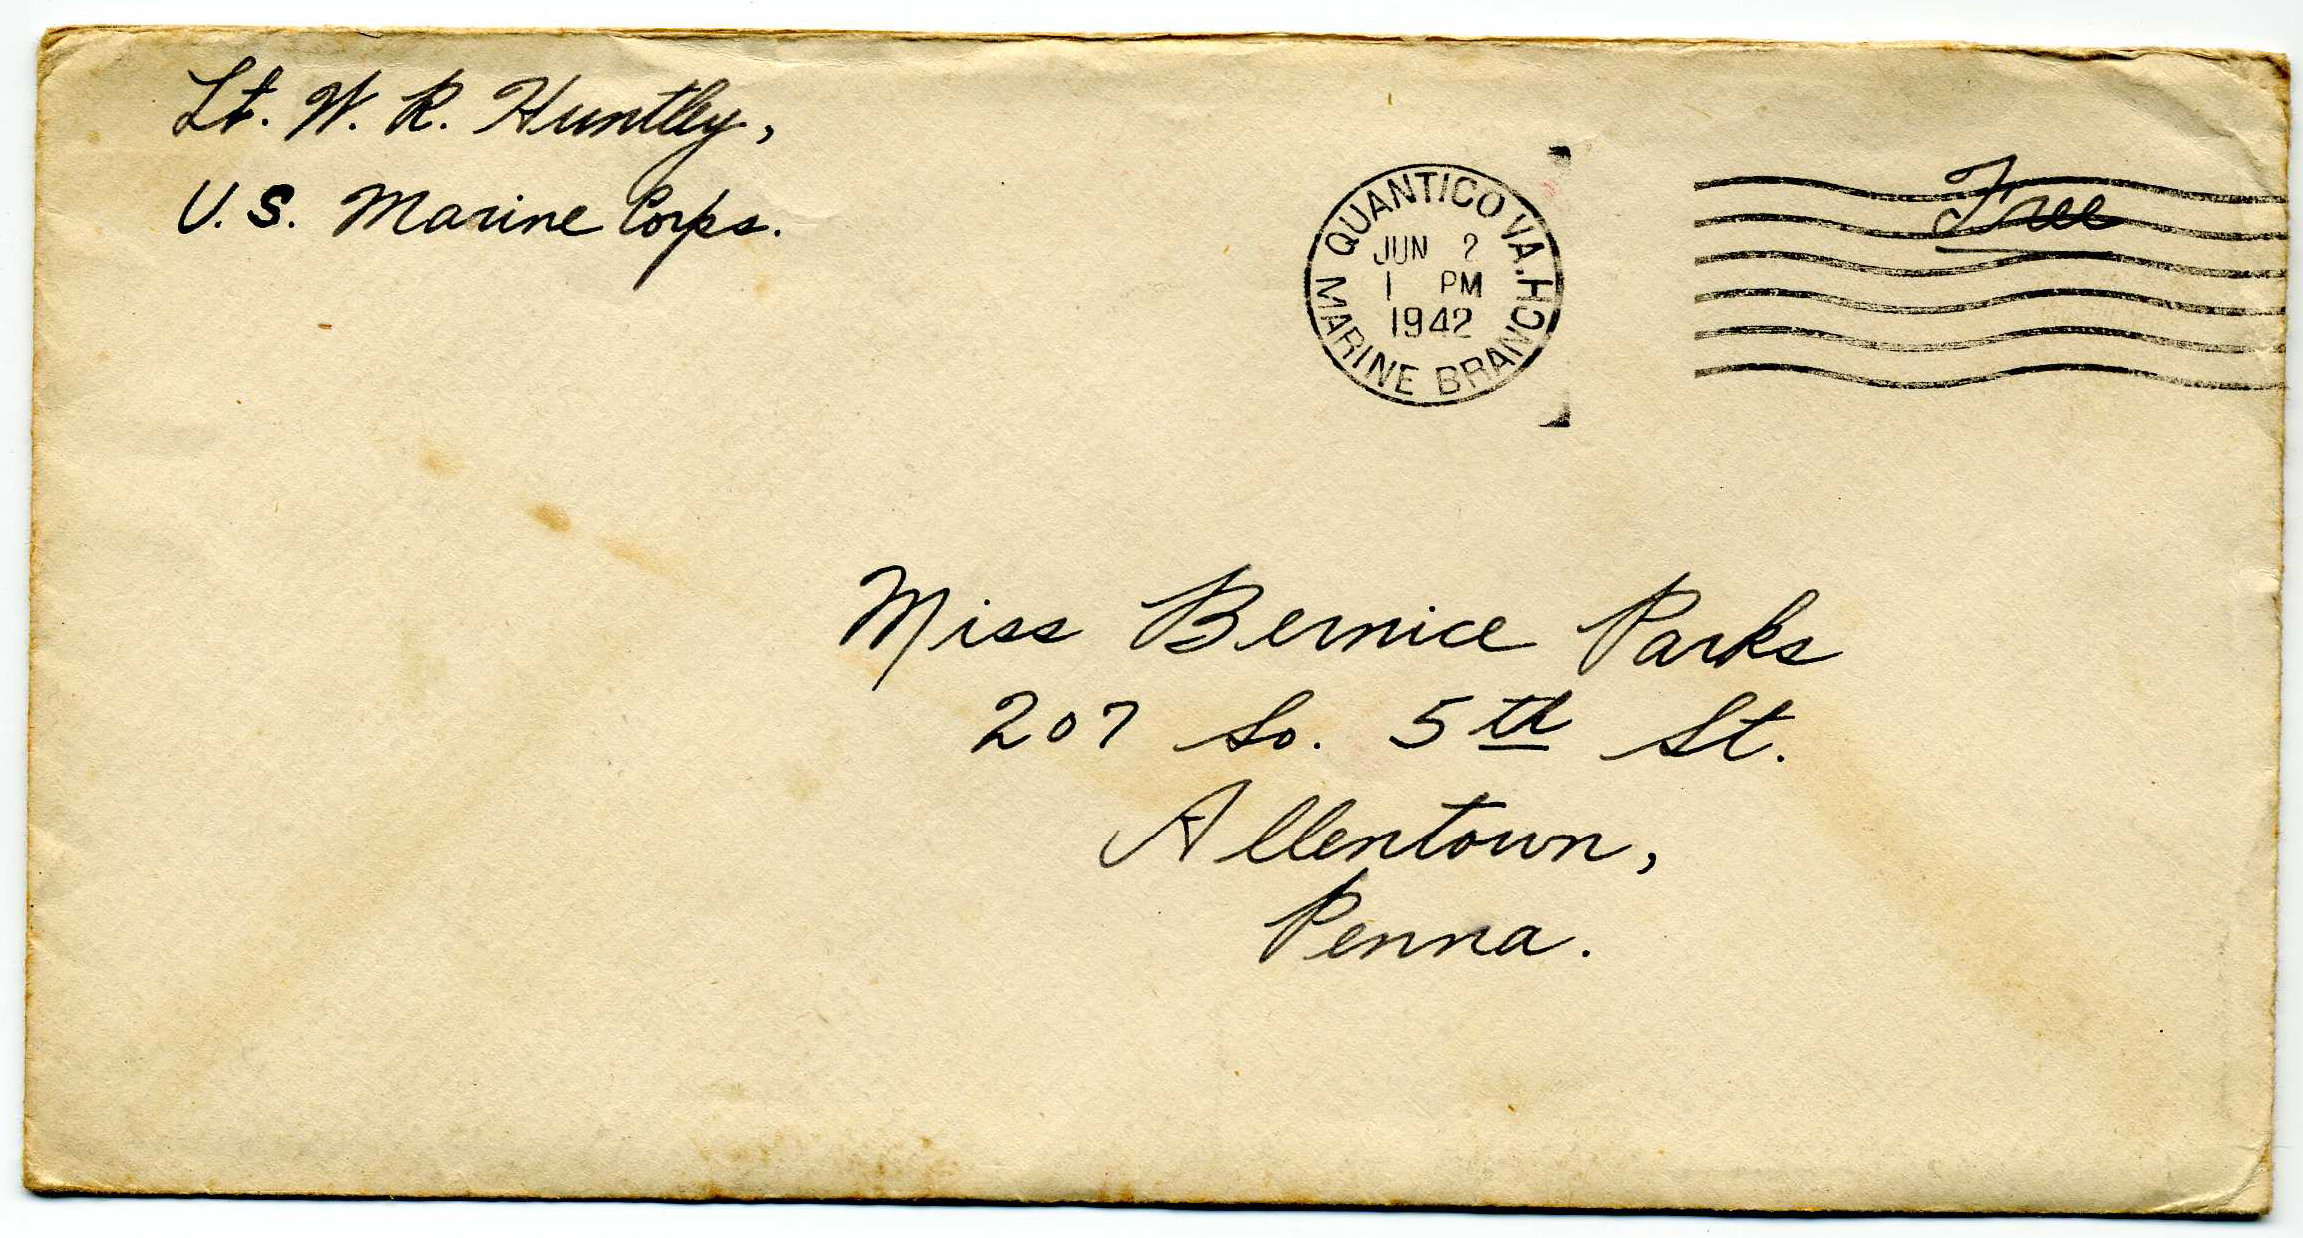 Lt. W. R. Huntley,
U.S. Marine Corps.
QUANTICO VA.
JUN 2
1 PM
1942
MARINE BRANCH
Free
Miss Bernice Parks
207 So. 5th St.
Allentown,
Penna.